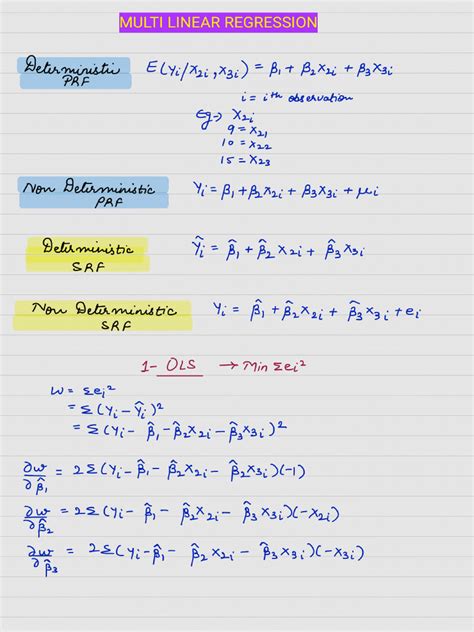 MULTI LINEAR REGRESSION
Deterministic PRF E(Yi/X2i, X3i) = β1 + β2X2i + β3X3i
i = ith observation
Eg→ X2i
9 = X21
10 = X22
15 = X23
Non Deterministic PRF Yi = β1 + β2X2i + β3X3i + μi
Deterministic SRF Ŷi = β̂1 + β̂2X2i + β̂3X3i
Non Deterministic SRF Yi = β̂1 + β̂2X2i + β̂3X3i + ei
1- OLS → Min Σei²
W = Σei²
= Σ(Yi - Ŷi)²
= Σ(Yi - β̂1 - β̂2X2i - β̂3X3i)²
∂w/∂β̂1 = 2Σ(Yi - β̂1 - β̂2X2i - β̂3X3i)(-1)
∂w/∂β̂2 = 2Σ(Yi - β̂1 - β̂2X2i - β̂3X3i)(-X2i)
∂w/∂β̂3 = 2Σ(Yi - β̂1 - β̂2X2i - β̂3X3i)(-X3i)